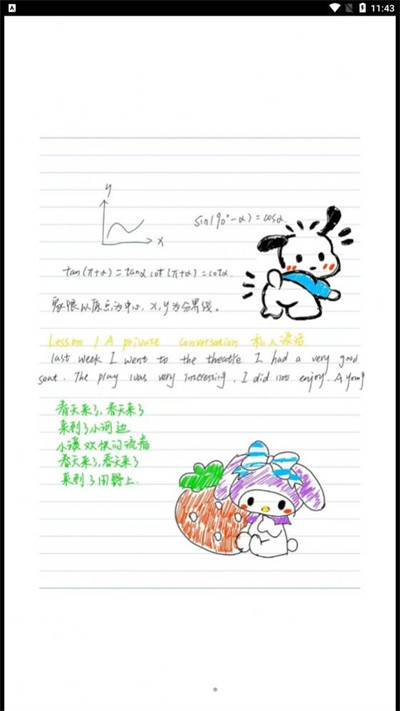 11:43
y
x
sin(90°-α)=cosα
tan(π+α)=tanα cot(π+α)=cotα
象限以原点为中心，x,y为分界线。
Lesson 1 A private conversation 私人谈话
last week I went to the theatre I had a very good
seat. The play was very interesting. I did not enjoy. A young
春天来了，春天来了
来到了小河边
小溪欢快的流着
春天来了，春天来了
来到了田野上